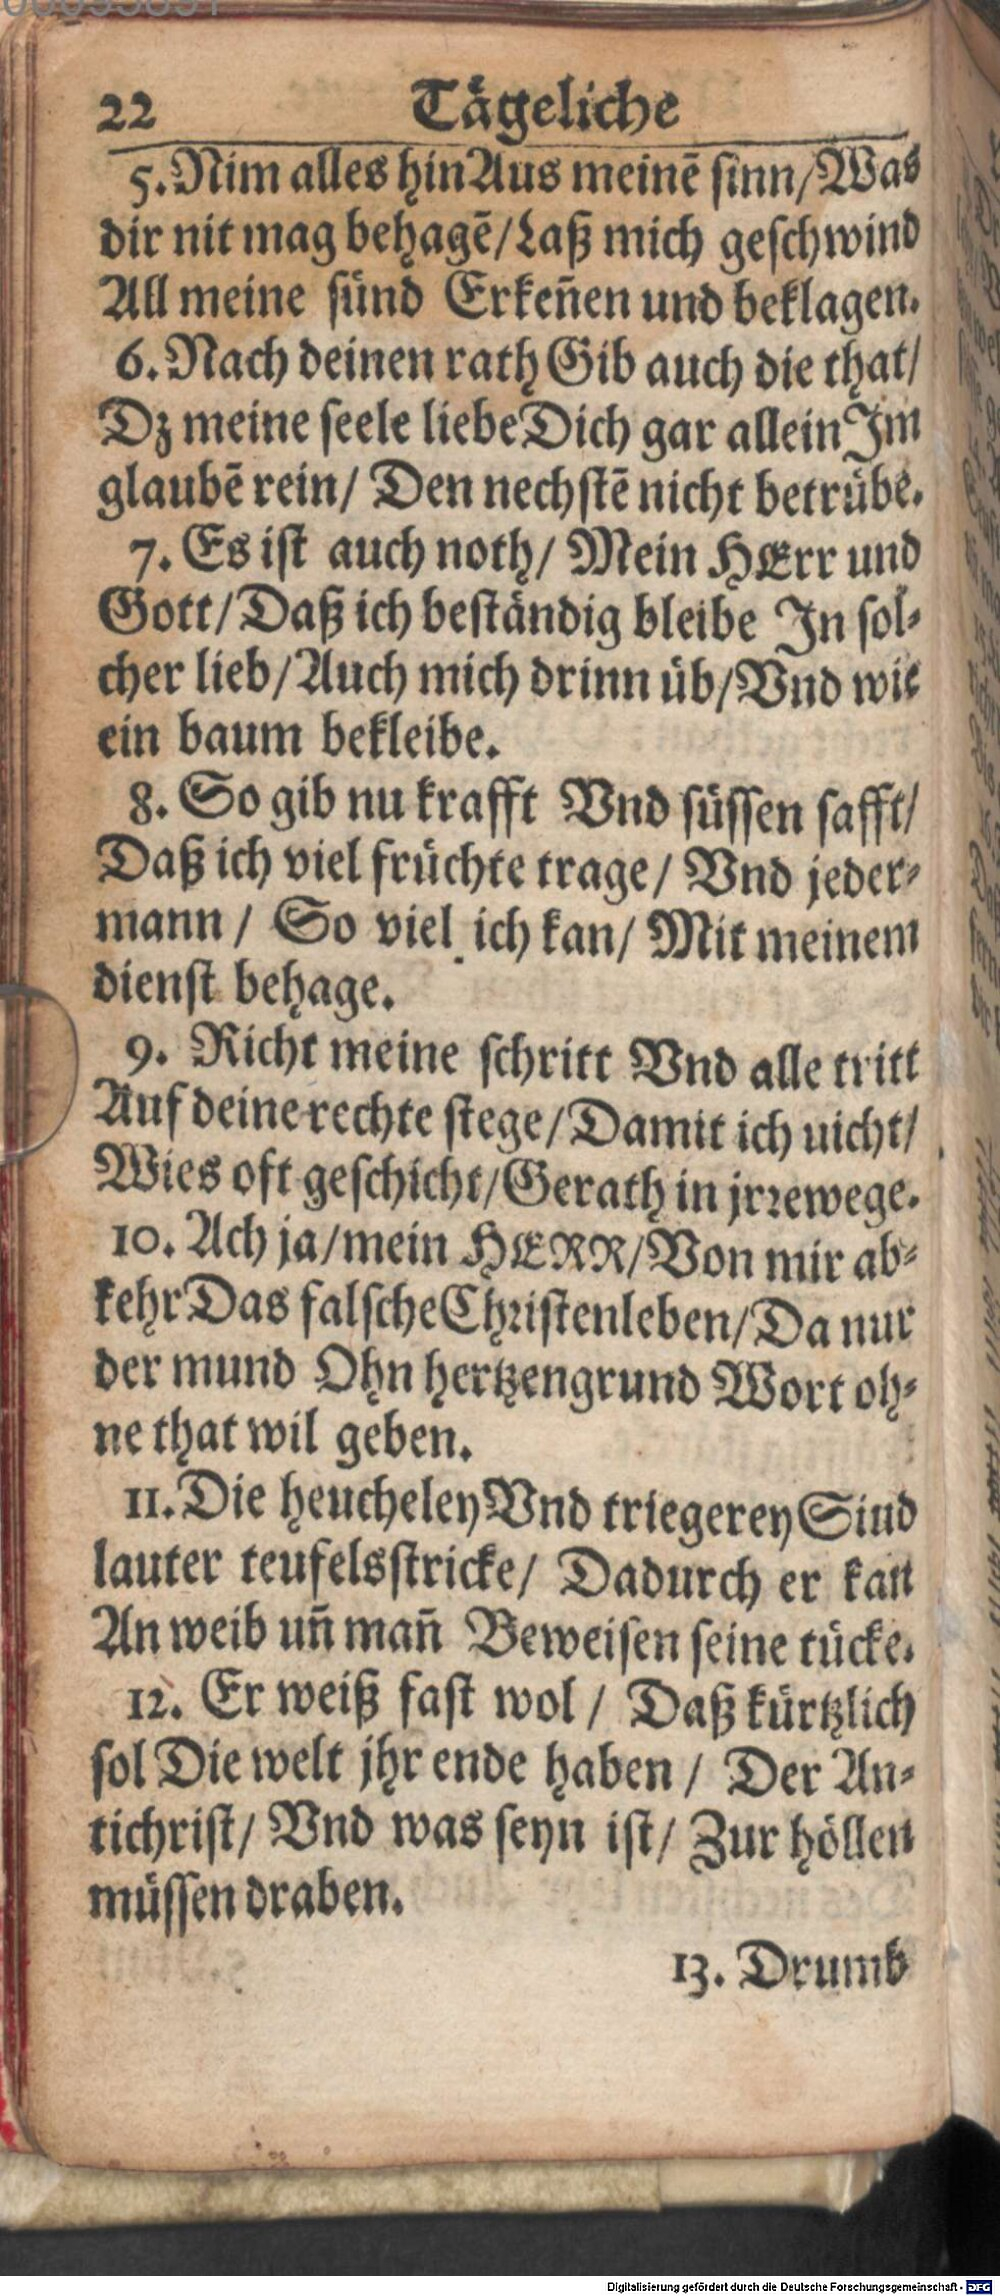 22 Tägeliche
5. Nim alles hin Aus meinē sinn/Was
dir nit mag behagē/Laß mich geschwind
All meine sünd Erkeñen und beklagen.
6. Nach deinen rath Gib auch die that/
Dz meine seele liebe Dich gar allein Im
glaubē rein/ Den nechstē nicht betrübe.
7. Es ist auch noth/ Mein HErr und
Gott/Daß ich beständig bleibe In sol-
cher lieb/Auch mich drinn üb/Vnd wie
ein baum bekleibe.
8. So gib nu krafft Vnd süssen safft/
Daß ich viel früchte trage/ Vnd jeder-
mann/ So viel ich kan/ Mit meinem
dienst behage.
9. Richt meine schritt Vnd alle tritt
Auf deine rechte stege/Damit ich uicht/
Wies oft geschicht/Gerath in jrrewege.
10. Ach ja/mein HERR/Von mir ab-
kehr Das falsche Christenleben/Da nur
der mund Ohn hertzengrund Wort oh-
ne that wil geben.
11. Die heucheley Vnd triegerey Siud
lauter teufelsstricke/ Dadurch er kan
An weib uñ mañ Beweisen seine tücke.
12. Er weiß fast wol/ Daß kürtzlich
sol Die welt jhr ende haben/ Der An-
tichrist/ Vnd was seyn ist/ Zur höllen
müssen draben.
13. Drumb
Digitalisierung gefördert durch die Deutsche Forschungsgemeinschaft - DFG